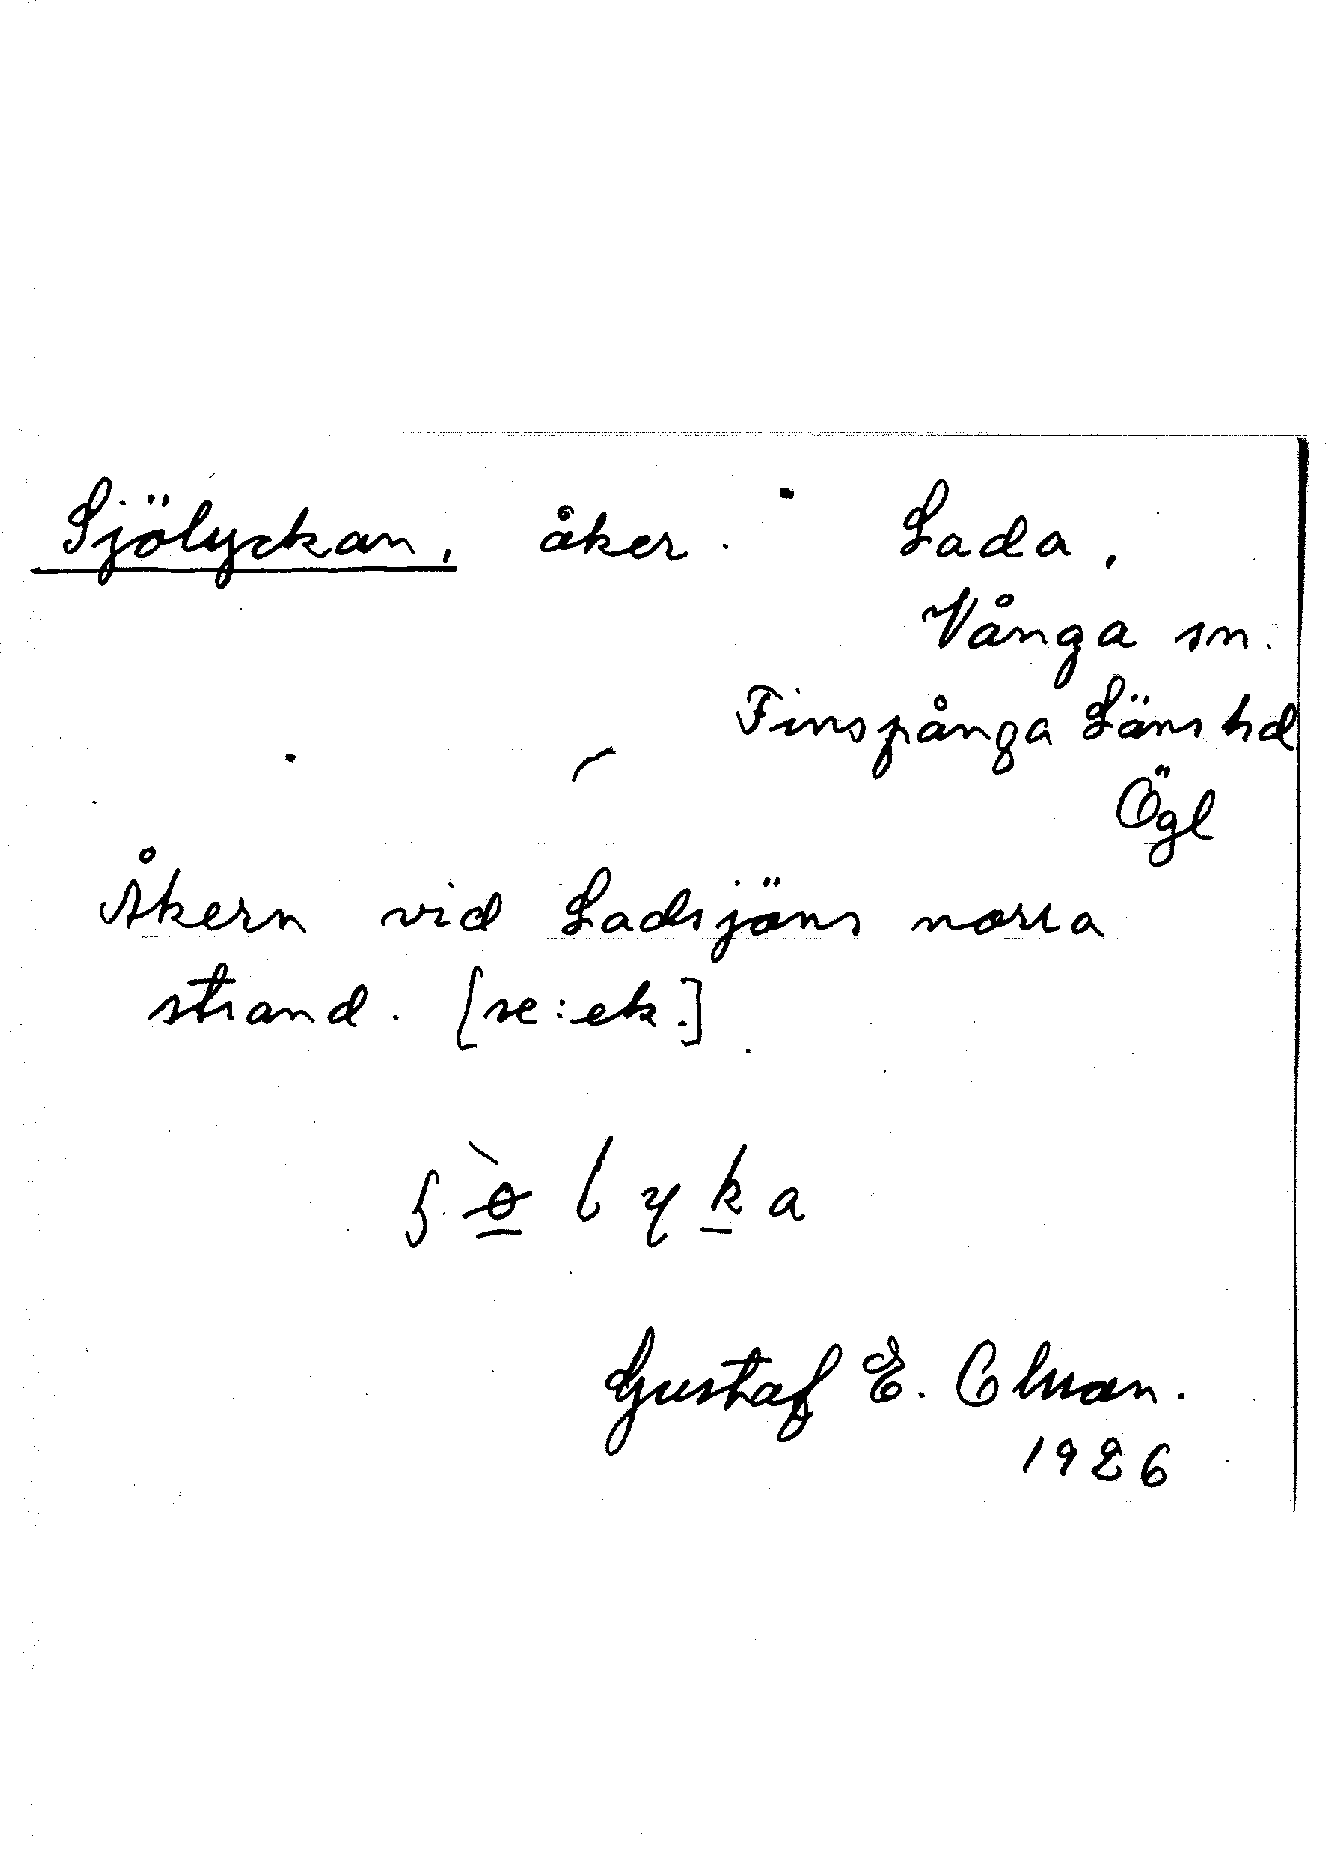 Sjölyckan, åker. Lada,
Vånga sn.
Finspånga Läns hd
Ögl
Åkern vid Ladsjöns norra
strand. [se: ek.]
l y k a
Gustaf E.
1926